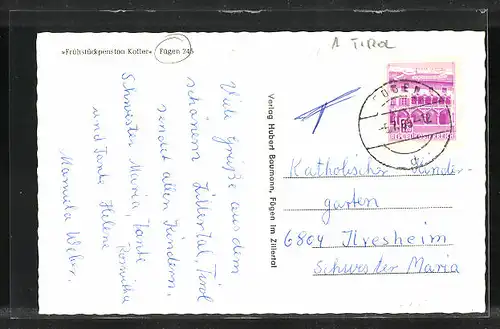 »Frühstückpension Kotter« Fügen 245
A TIROL
FÜGEN
Viele Grüße aus dem
schönem Zillertal, Tirol
sendet allen Kindern,
Schwester Maria, Tante
Roswitha
und Tante Helene
Manuela Weber.
Verlag Hubert Baumann, Fügen im Zillertal
Katholischer Kinder-
garten
6804 Ilvesheim
Schwester Maria